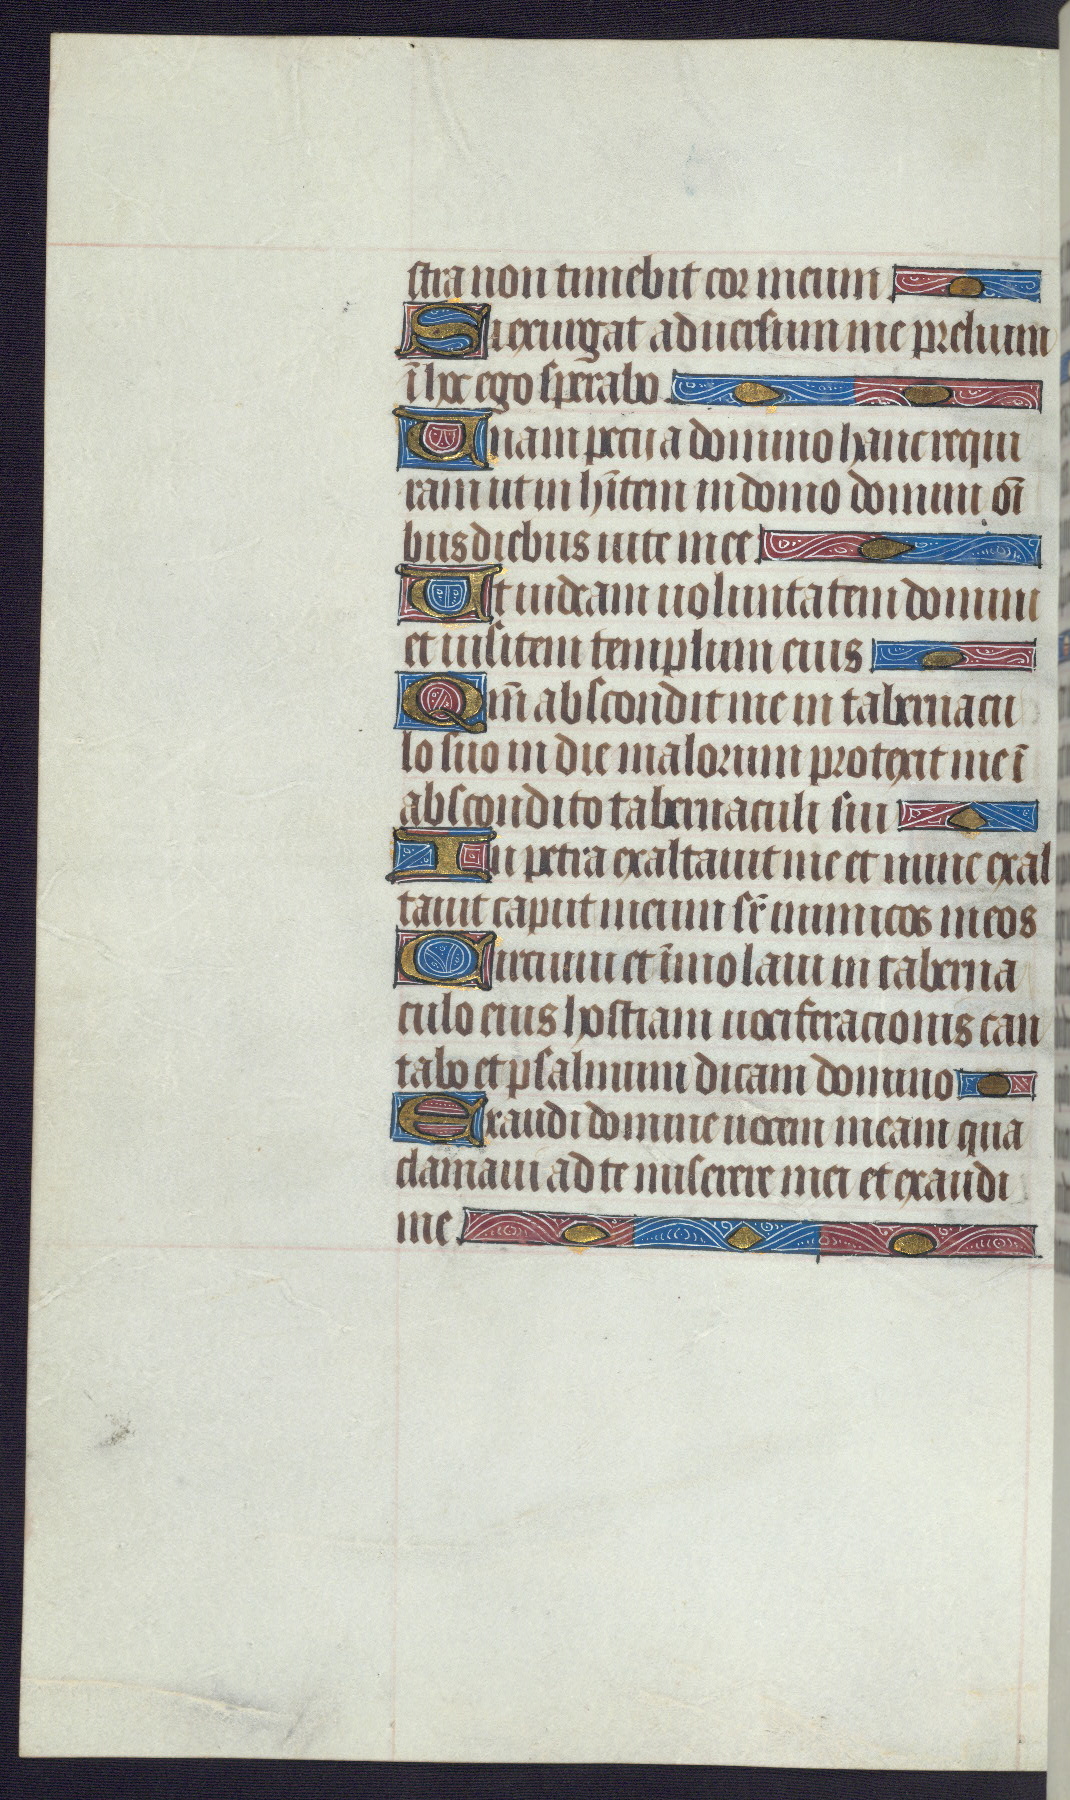 stra non timebit cor meum
Si exurgat aduersum me prelium
ī hoc ego sperabo.
Unam pecii a domino hanc requi
ram ut in hītem in domo domini oī
bus diebus uite mee.
Ut uideam uoluntatem domini
et uisitem templum eius
Qm̄ abscondit me in tabernacu
lo suo in die malorum protexit me ī
abscondito tabernaculi sui
In petra exaltauit me et nunc exal
tauit caput meum sr̄ inimicos meos
Circuiui et īmolaui in taberna
culo eius hostiam uociferacionis can
tabo et psalmum dicam domino
Exaudi domine uocem meam qua
clamaui ad te miserere mei et exaudi
me.